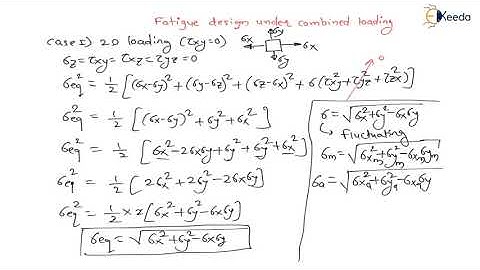 Fatigue design under combined loading
EKeeda
Case I) 2D loading (τxy=0)
6y
6x
6x
6y
6z = τxy = τxz = τyz = 0
0
6eq² = 1/2 [(6x-6y)² + (6y-6z)² + (6z-6x)² + 6(τxy² + τyz² + τzx²)]
6eq² = 1/2 [(6x-6y)² + 6y² + 6x²]
6eq² = 1/2 [6x² - 26x6y + 6y² + 6y² + 6x²]
6eq² = 1/2 [26x² + 26y² - 26x6y]
6eq² = 1/2 × 2 [6x² + 6y² - 6x6y]
6eq = √6x² + 6y² - 6x6y
6 = √6x² + 6y² - 6x6y
↳ fluctuating
6m = √6xm² + 6ym² - 6xm6ym
6a = √6xa² + 6ya² - 6xa6y